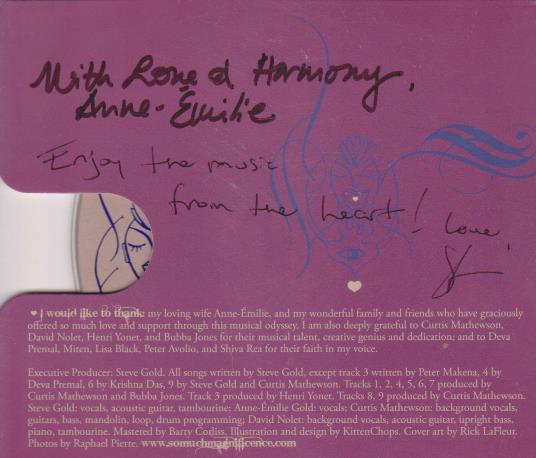 With Love & Harmony,
Anne-Émilie
Enjoy the music
from the heart! Love,
♥ I would like to thank: my loving wife Anne-Émilie, and my wonderful family and friends who have graciously
offered so much love and support through this musical odyssey. I am also deeply grateful to Curtis Mathewson,
David Nolet, Henri Yonet, and Bubba Jones for their musical talent, creative genius and dedication; and to Deva
Premal, Miten, Lisa Black, Peter Avolio, and Shiva Rea for their faith in my voice.
Executive Producer: Steve Gold. All songs written by Steve Gold, except track 3 written by Peter Makena, 4 by
Deva Premal, 6 by Krishna Das, 9 by Steve Gold and Curtis Mathewson. Tracks 1, 2, 4, 5, 6, 7 produced by
Curtis Mathewson and Bubba Jones. Track 3 produced by Henri Yonet. Tracks 8, 9 produced by Curtis Mathewson.
Steve Gold: vocals, acoustic guitar, tambourine; Anne-Émilie Gold: vocals; Curtis Mathewson: background vocals,
guitars, bass, mandolin, loop, drum programming; David Nolet: background vocals, acoustic guitar, upright bass,
piano, tambourine. Mastered by Barry Corliss. Illustration and design by KittenChops. Cover art by Rick LaFleur.
Photos by Raphael Pierre. www.somuchmagnificence.com